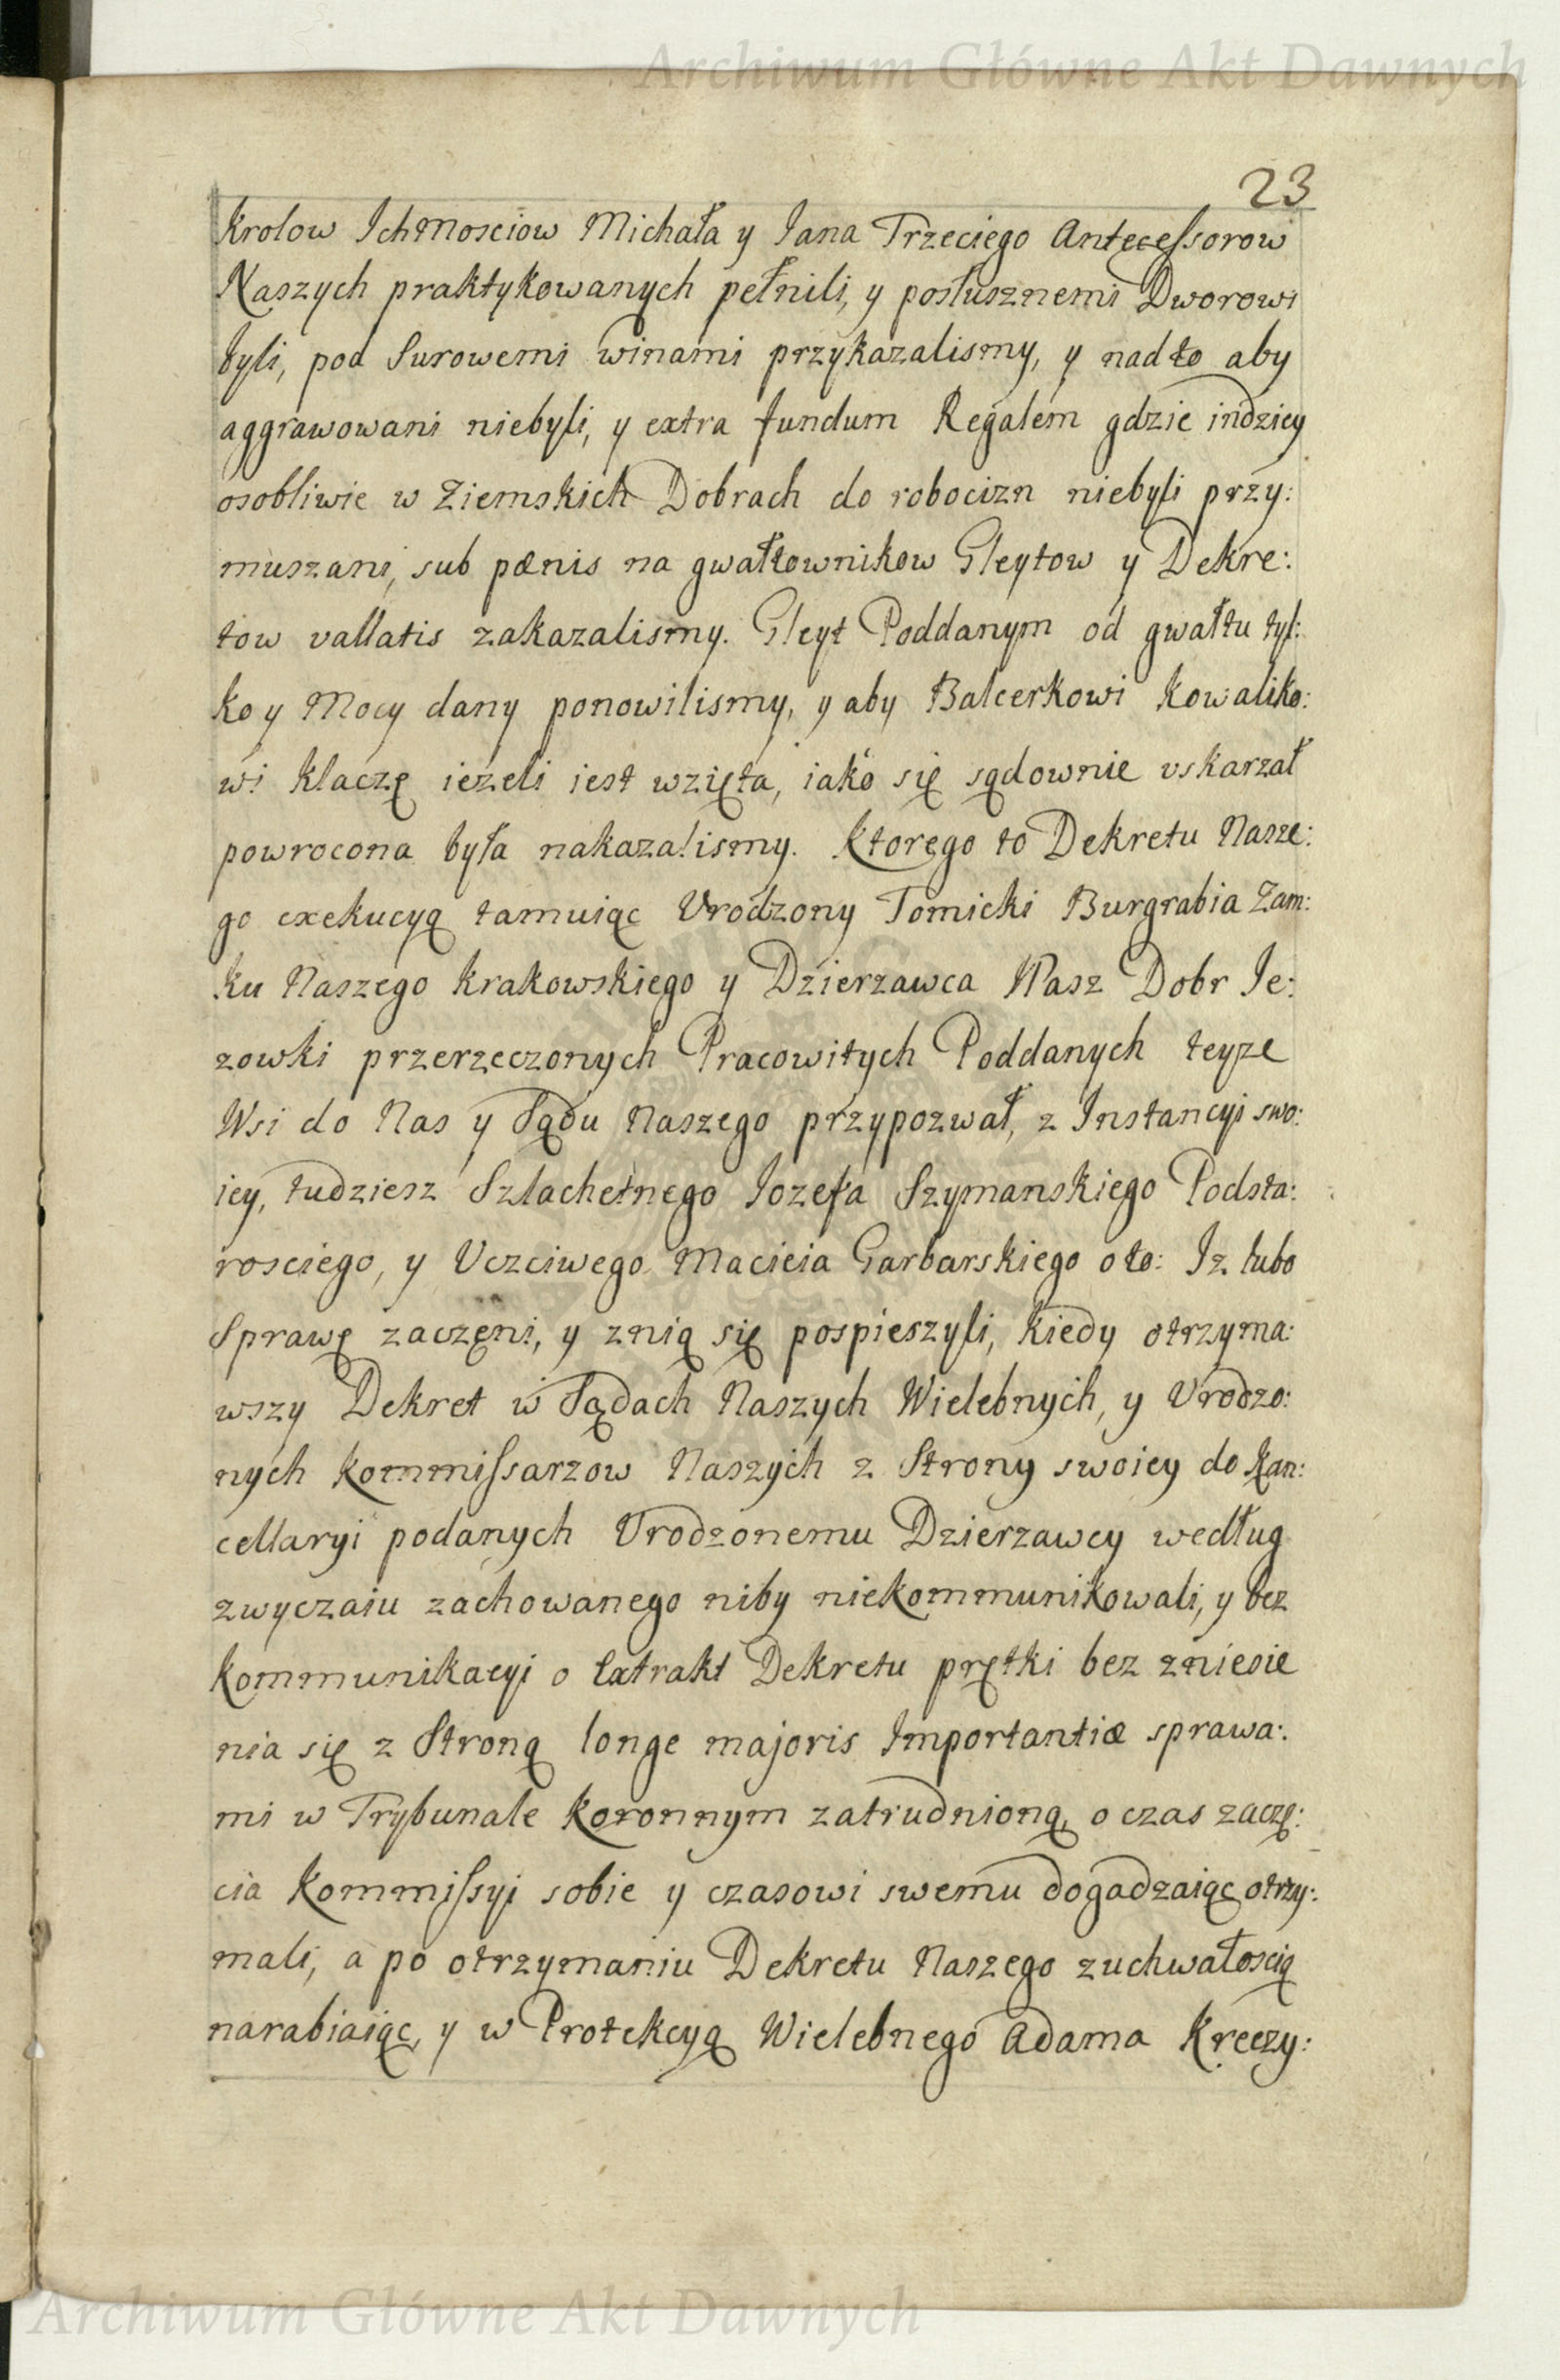 Archiwum Główne Akt Dawnych
23
Krolow Ichmosciow Michała y Jana Trzeciego Antecessorow
Naszych praktykowanych pełnili, y posłusznemi Dworowi
byli, pod Surowemi winami przykazalismy, y nadto aby
aggrawowani niebyli, y extra fundum Regalem gdzie indziey
osobliwie w Ziemskich Dobrach do robocizn niebyli przy:
muszani, sub pænis na gwałtownikow Gleytow y Dekre:
tow vallatis zakazalismy. Gleyt Poddanym od gwałtu tyl:
ko y Mocy dany ponowilismy, y aby Balcerkowi Kowaliko:
wi klaczę ieżeli iest wzięta, iako się sądownie vskarzał
powrocona była nakazalismy. Ktorego to Dekretu Nasze:
go exekucyą tamuiąc Vrodzony Tomicki Burgrabia Zam:
ku Naszego Krakowskiego y Dzierzawca Nasz Dobr Je:
zowki przerzeczonych Pracowitych Poddanych teyze
Wsi do Nas y Sądu Naszego przypozwał, z Instancyi swo:
iey, tudziesz Szlachetnego Jozefa Szymanskiego Podsta:
rosciego, y Vczciwego Macieia Garbarskiego oto: Iz lubo
Sprawę zaczęni, y znią się pospieszyli, kiedy otrzyma:
wszy Dekret w Sądach Naszych Wielebnych, y Vrodzo:
nych Kommissarzow Naszych z Strony swoiey do Kan:
cellaryi podanych Vrodzonemu Dzierzawcy według
zwyczaiu zachowanego niby niekommunikowali, y bez
kommunikacyi o Extrakt Dekretu prętki bez zniesie
nia się z Stroną longe majoris Importantiæ sprawa:
mi w Trybunale Koronnym zatrudnioną, o czas zaczę:
cia Kommissyi sobie y czasowi swemu dogadzaiąc otrzy:
mali, a po otrzymaniu Dekretu Naszego zuchwałoscią
narabiaiąc, y w Protekcyą Wielebnego Adama Kreczy:
Archiwum Główne Akt Dawnych